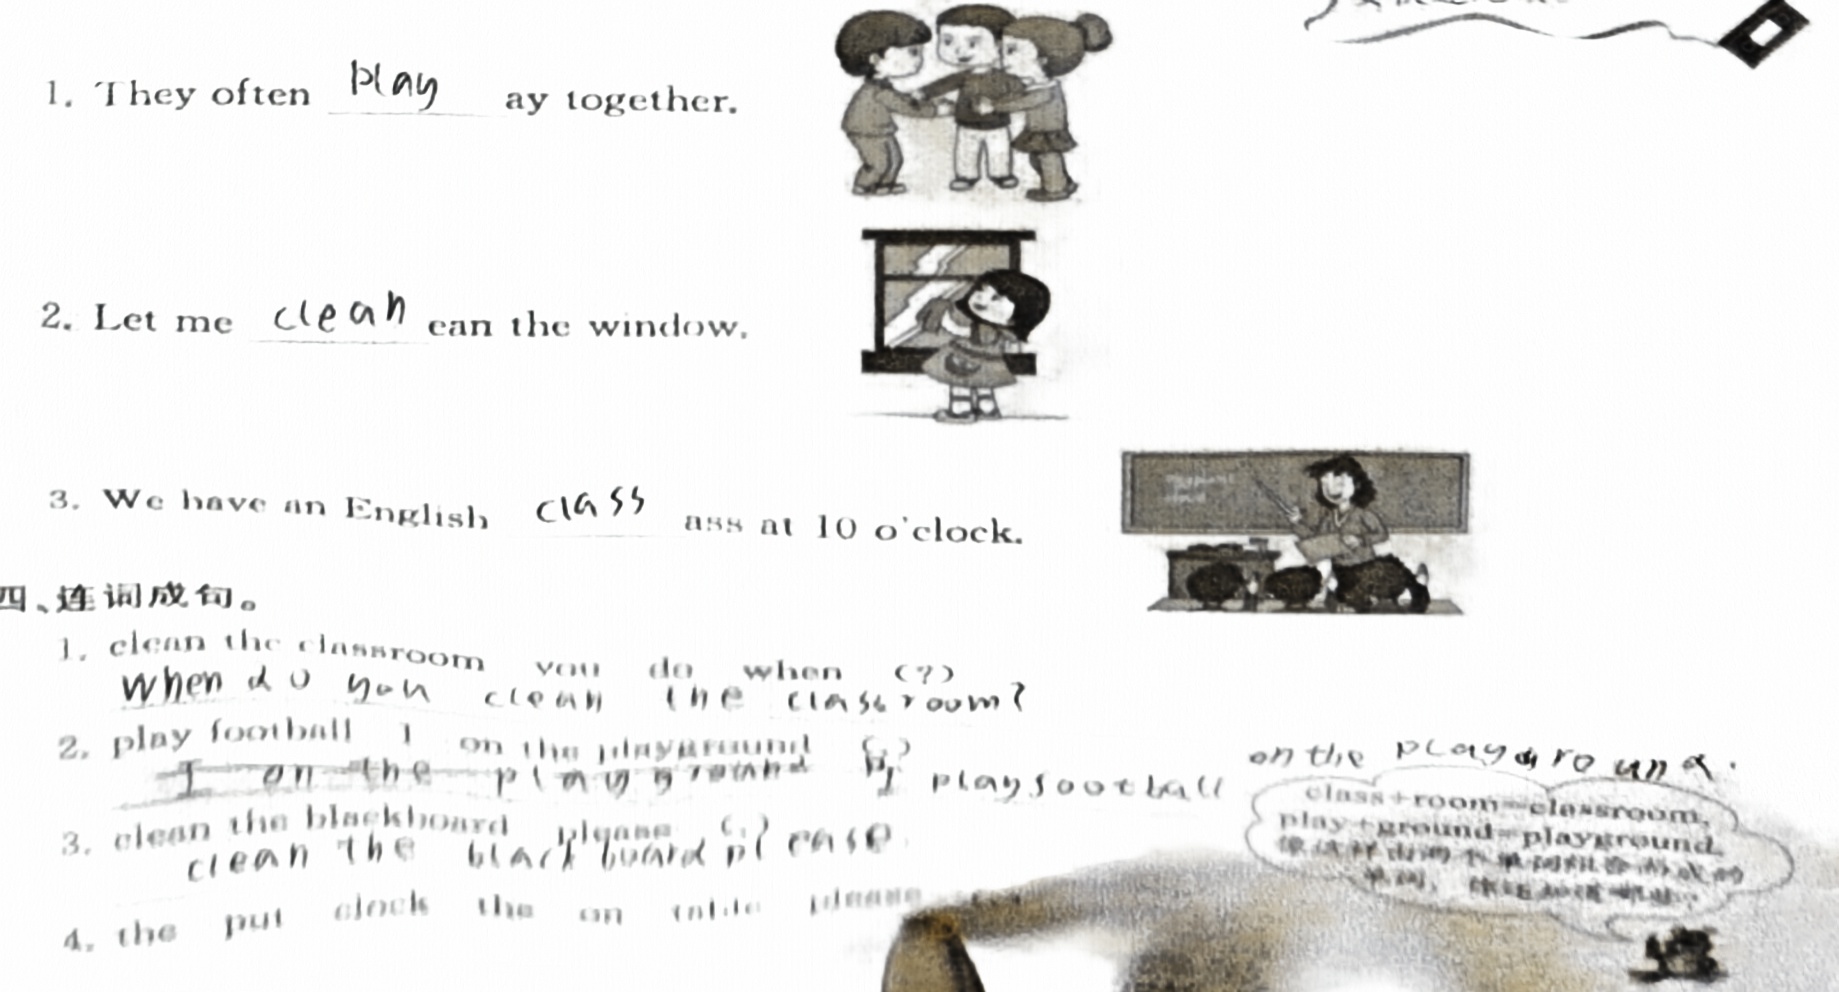 1. They often play ay together.
2. Let me clean ean the window.
3. We have an English class ass at 10 o'clock.
四、连词成句。
1. clean the classroom you do when (?)
When do you clean the classroom?
2. play football I on the playground (.)
I on the playground I play football on the playground.
3. clean the blackboard please (.)
clean the blackboard please
4. the put clock the on table please
class+room=classroom,
play+ground=playground.